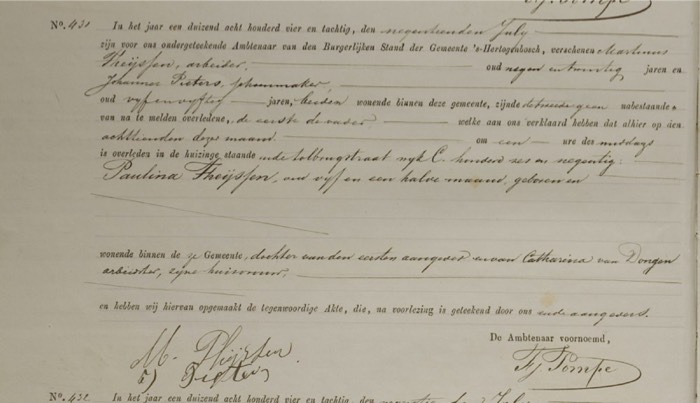 F.J. Pompe
N°. 431 In het jaar een duizend acht honderd vier en tachtig, den negentienden July
zijn voor ons ondergeteekende Ambtenaar van den Burgerlijken Stand der Gemeente 's-Hertogenbosch, verschenen Martinus
Theijssen, arbeider, oud negen en twintig jaren en
Johannes Pieters, schoenmaker,
oud vyf en vyftig jaren, beiden wonende binnen deze gemeente, zijnde de tweede geen nabestaande
van na te melden overledene, de eerste de vader, welke aan ons verklaard hebben dat alhier op den
achttienden dezer maand om een ure des middags
is overleden in de huizinge staande in de Tolbrugstraat wyk C. honderd zes en negentig:
Paulina Theijssen, oud vyf en een halve maand, geboren en
wonende binnen deze Gemeente, dochter van den eersten aangever en van Catharina van Dongen
arbeidster, zyne huisvrouw,
en hebben wij hiervan opgemaakt de tegenwoordige Akte, die, na voorlezing is geteekend door ons en de aangevers.
De Ambtenaar voornoemd,
M. Theijssen
J Pieters
F.J. Pompe
N°. 432 In het jaar een duizend acht honderd vier en tachtig, den July